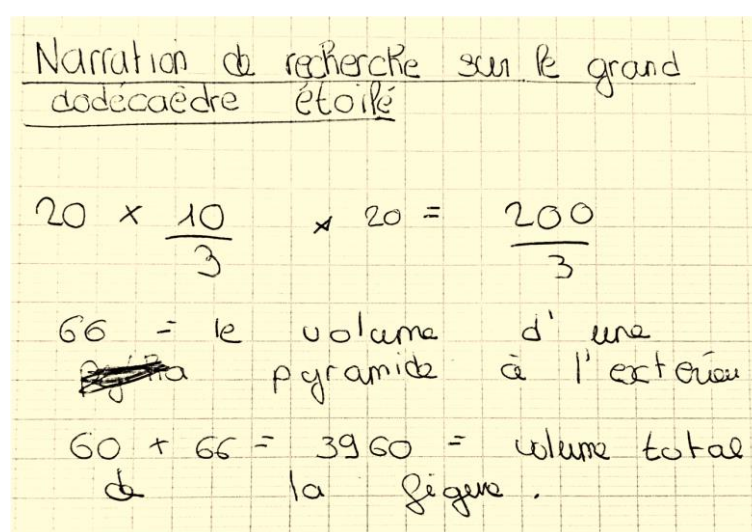 Narration de recherche sur le grand
dodécaèdre étoilé
20 × 10/3 × 20 = 200/3
66 = le volume d'une
pyramide à l'exterieu
60 + 66 = 3960 = volume total
de la figure.